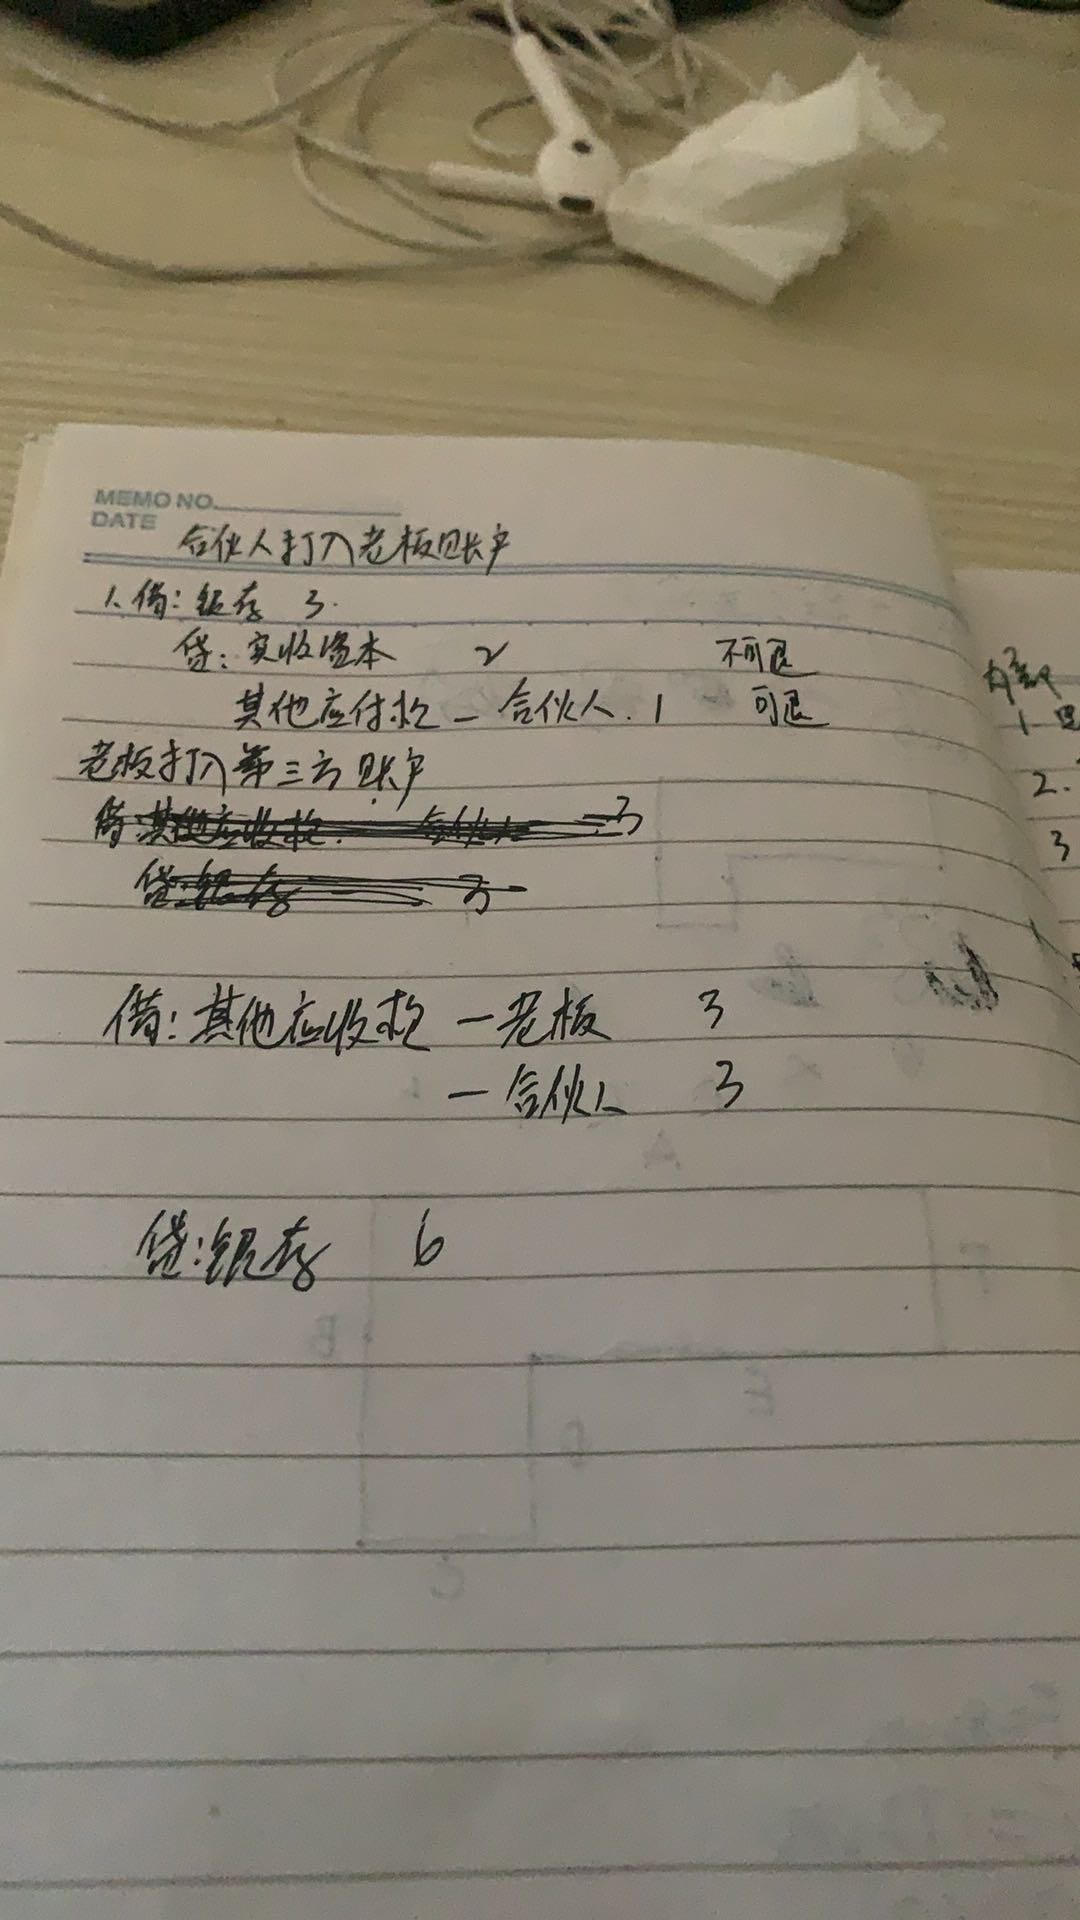 MEMO NO.
DATE
合伙人打入老板账户
1.借：银存 3.
贷：实收资本 2 不可退
其他应付款 - 合伙人. 1 可退
老板打入第三方账户
借:其他应收款 合伙人 3
贷:银存 3
借：其他应收款 - 老板 3
- 合伙人 3
贷:银存 6
内部
1.
2.
3